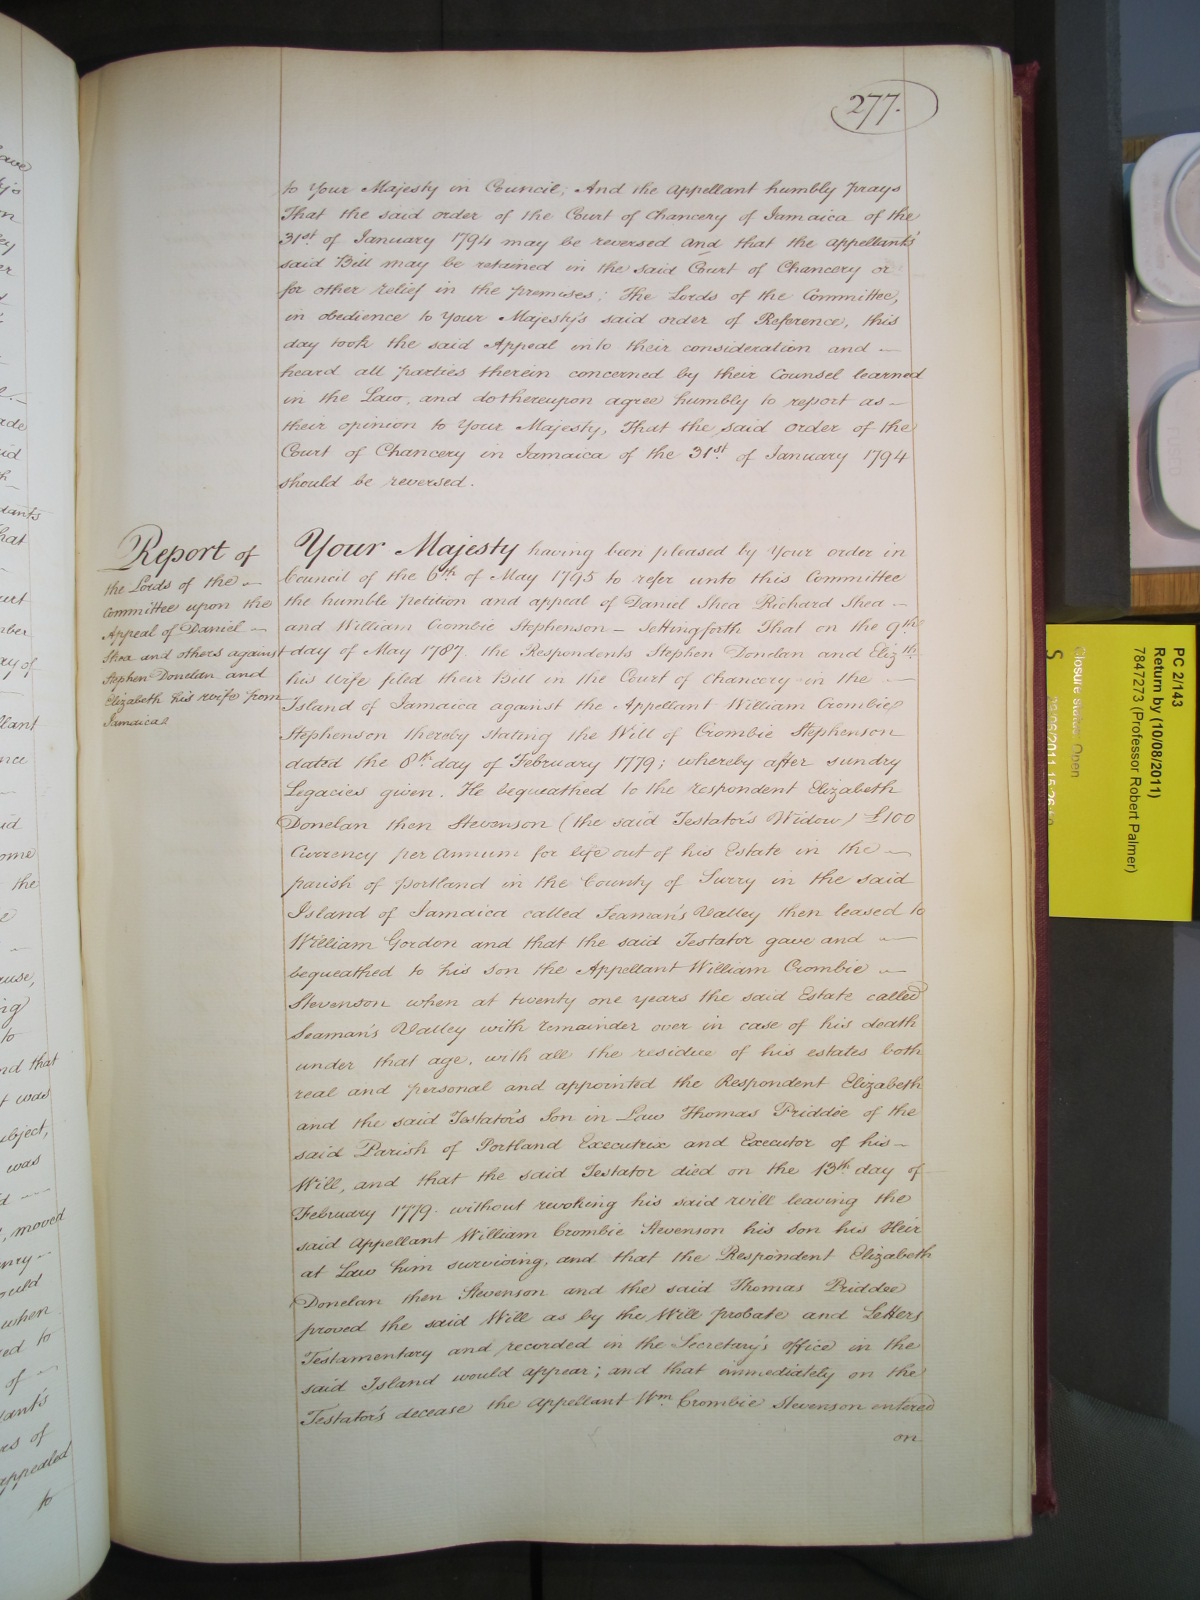 277.
to Your Majesty in Council; And the appellant humbly prays
That the said order of the Court of Chancery of Jamaica of the
31st of January 1794 may be reversed and that the appellants'
said Bill may be retained in the said Court of Chancery or
for other relief in the premises: The Lords of the Committee,
in obedience to Your Majesty's said order of Reference, this
day took the said Appeal into their consideration and —
heard all parties therein concerned by their Counsel learned
in the Law, and do thereupon agree humbly to report as —
their opinion to Your Majesty, That the said order of the
Court of Chancery in Jamaica of the 31st of January 1794
should be reversed.
Report of
the Lords of the —
Committee upon the
Appeal of Daniel —
Shea and others against
Stephen Donelan and
Elizabeth his wife from
Jamaica
Your Majesty having been pleased by Your order in
Council of the 6th of May 1795 to refer unto this Committee
the humble petition and appeal of Daniel Shea Richard Shea —
and William Crombie Stephenson — Setting forth That on the 9th
day of May 1787. the Respondents Stephen Donelan and Elizth
his Wife filed their Bill in the Court of Chancery in the —
Island of Jamaica against the Appellant William Crombie
Stephenson thereby stating the Will of Crombie Stephenson
dated the 8th day of February 1779; whereby after sundry
Legacies given. He bequeathed to the respondent Elizabeth
Donelan then Stevenson (the said Testator's Widow) £100
Currency per Annum for life out of his Estate in the —
parish of Portland in the County of Surry in the said
Island of Jamaica called Seaman's Valley then leased to
William Gordon and that the said Testator gave and —
bequeathed to his son the Appellant William Crombie —
Stevenson when at twenty one years the said Estate called
Seaman's Valley with remainder over in case of his death
under that age, with all the residue of his estates both
real and personal and appointed the Respondent Elizabeth
and the said Testator's Son in Law Thomas Priddie of the
said Parish of Portland Executrix and Executor of his —
Will, and that the said Testator died on the 13th day of
February 1779. without revoking his said will leaving the
said Appellant William Crombie Stevenson his son his Heir
at Law him surviving, and that the Respondent Elizabeth
Donelan then Stevenson and the said Thomas Priddee
proved the said Will as by the Will probate and Letters
Testamentary and recorded in the Secretary's office in the
said Island would appear; and that immediately on the
Testator's decease the appellant Wm Crombie Stevenson entered
on
PC 2/143
Return by (10/08/2011)
7847273 (Professor Robert Palmer)
Closure status: Open
S